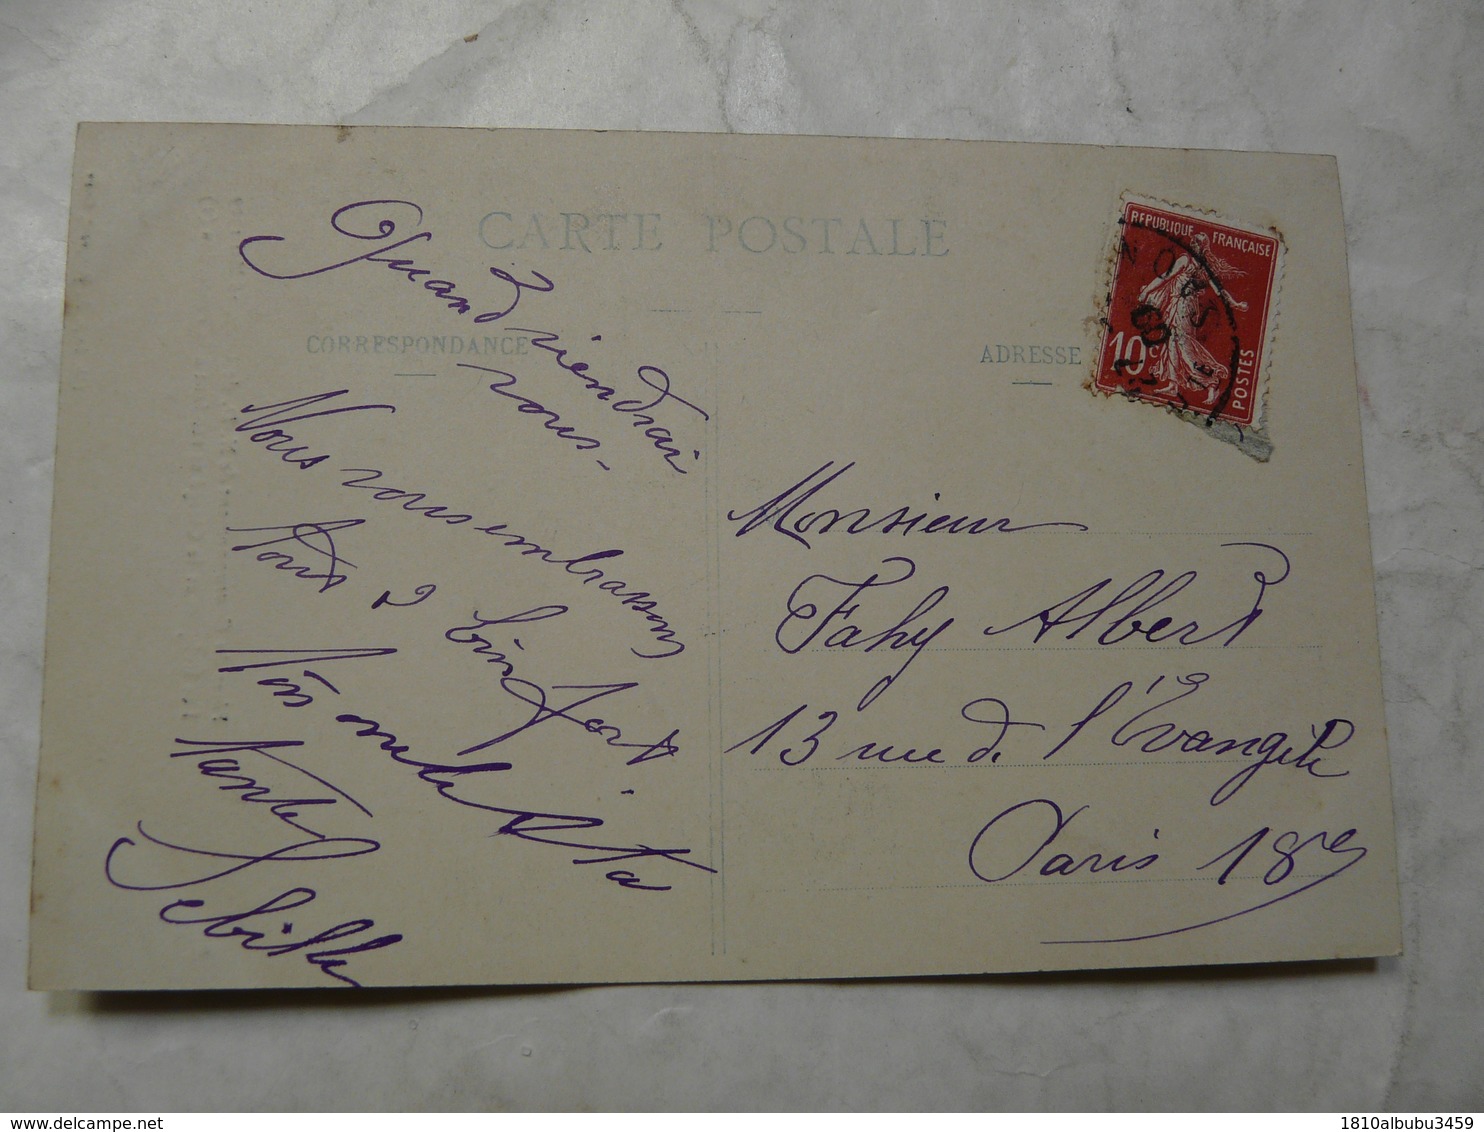 CARTE POSTALE
CORRESPONDANCE
Quand viendrai
vous.
Nous vous embrassons
tous 2 bien fort
Sebille
ADRESSE
REPUBLIQUE FRANÇAISE
10c
POSTES
Monsieur
Fahy Albert
13 rue de l'Evangile
Paris 18me
www.delcampe.net
1810albubu3459